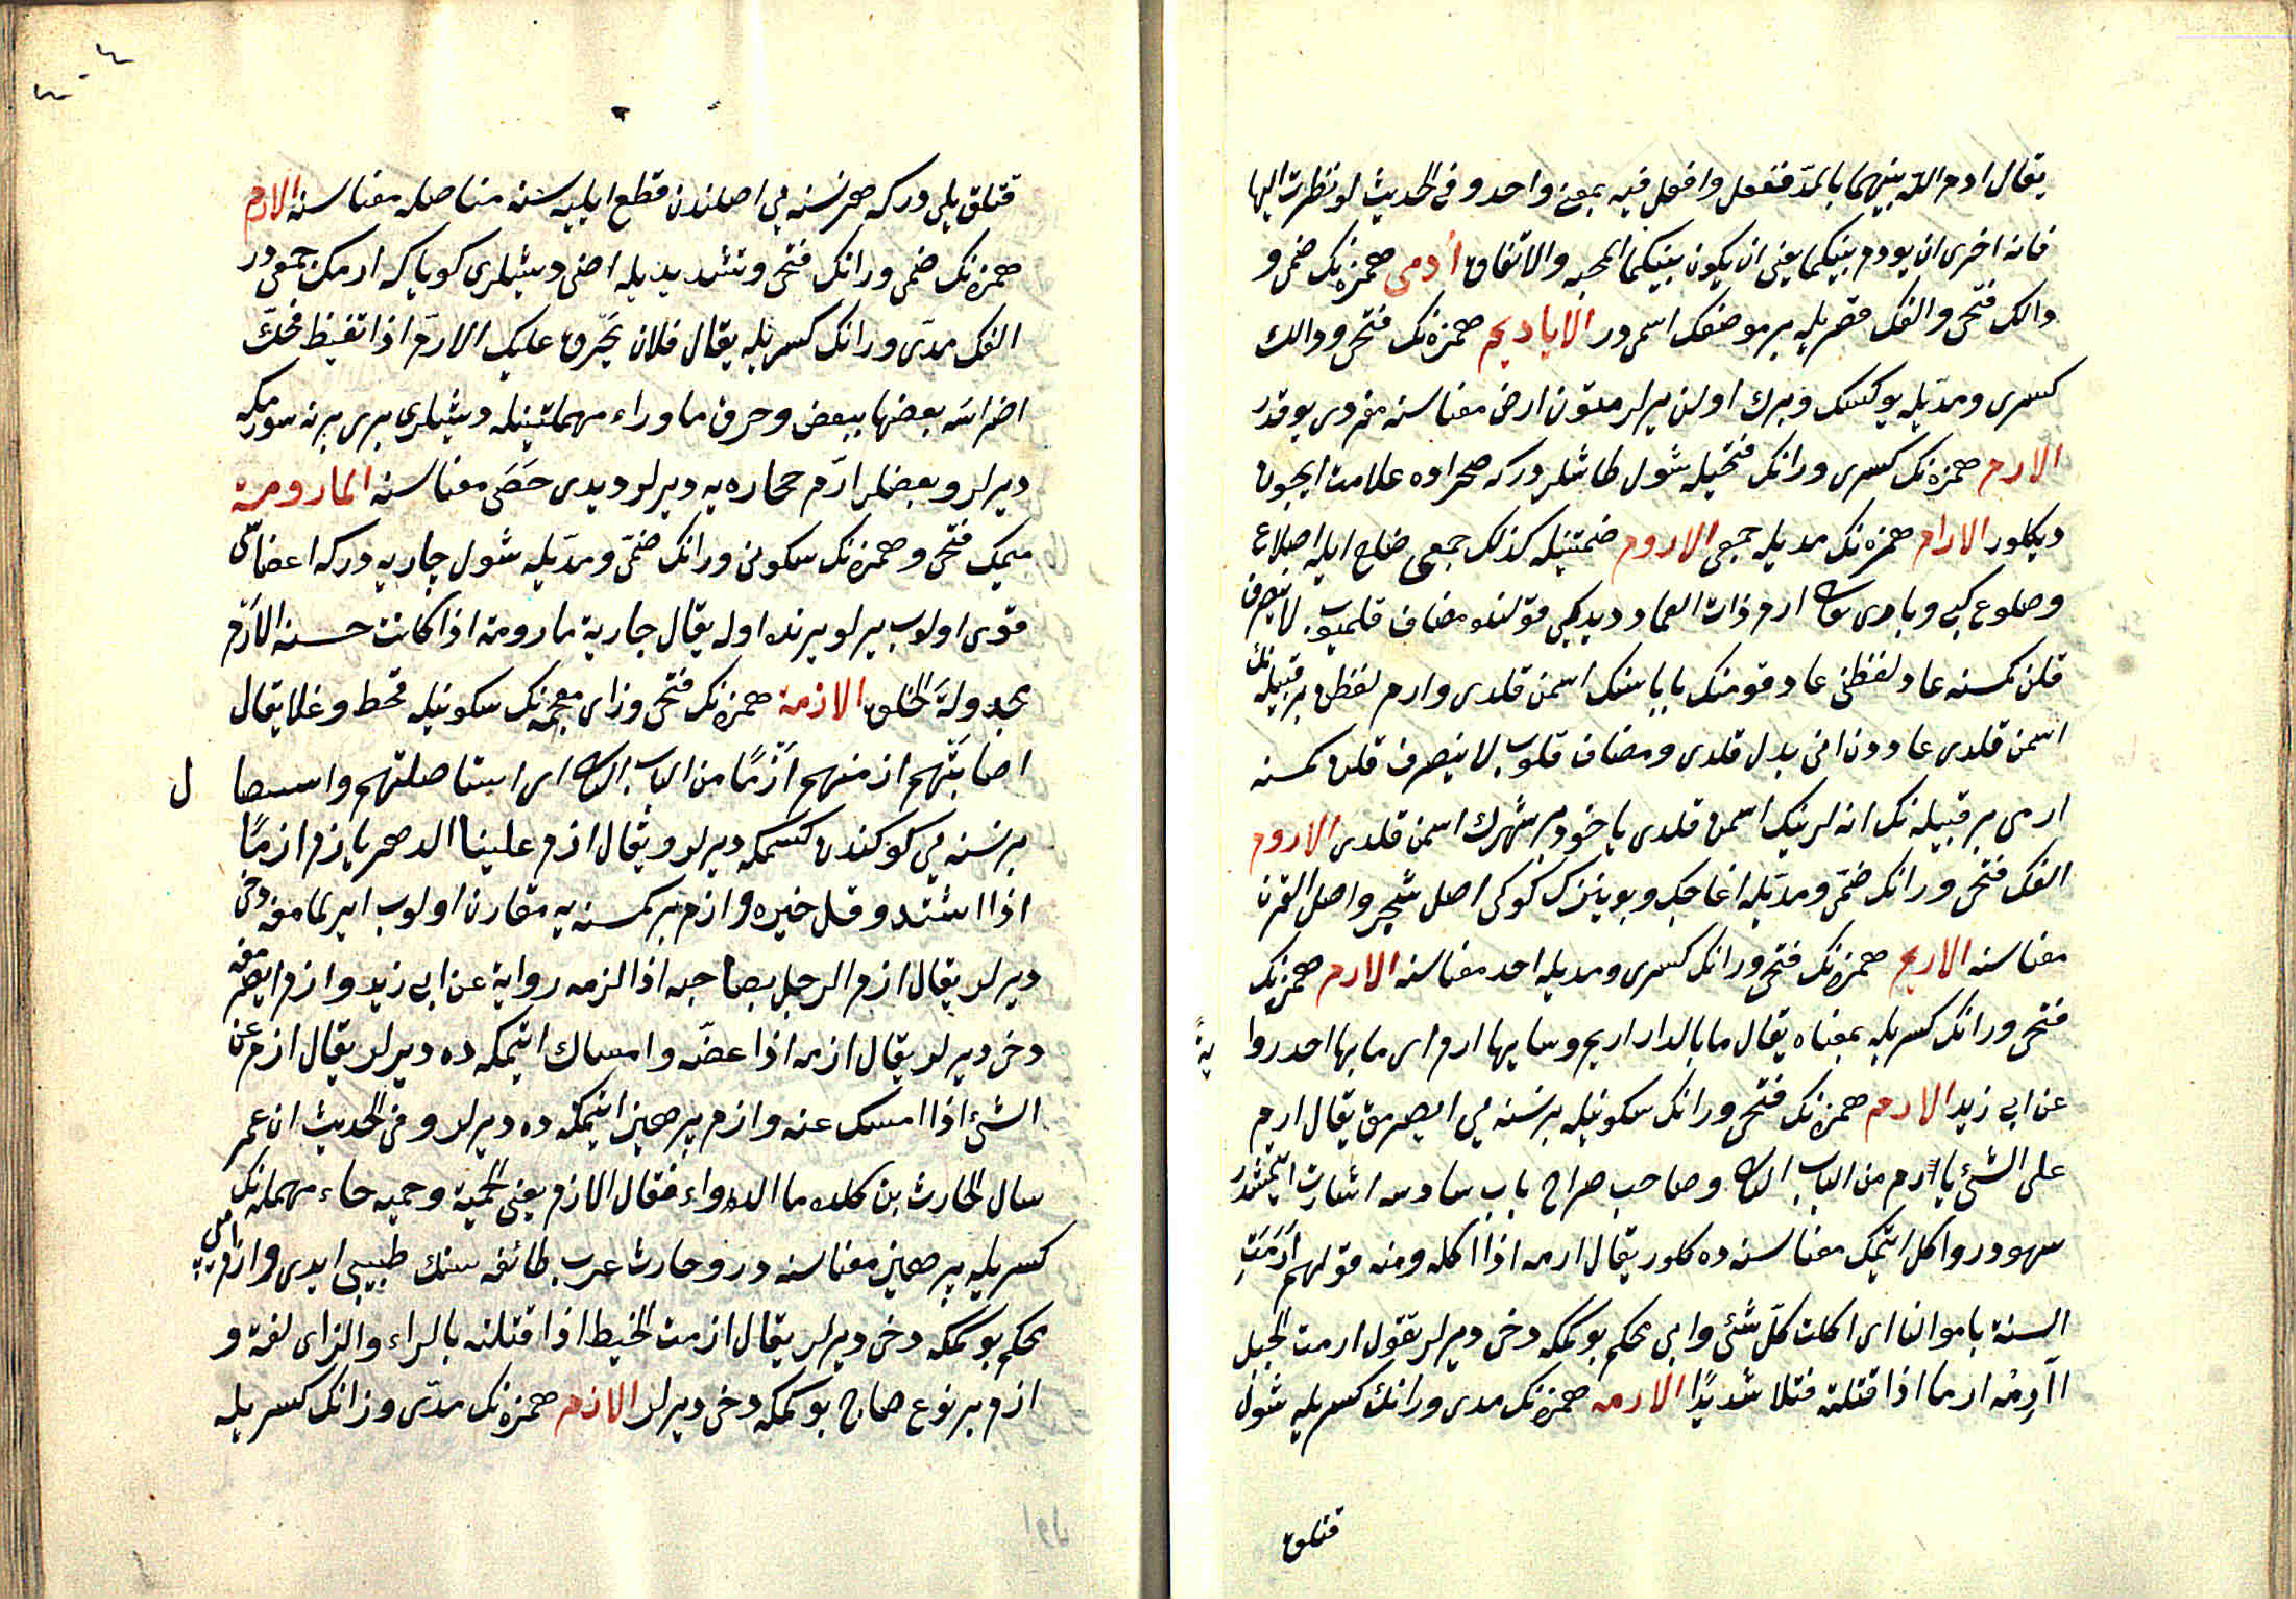 يقال ادم الله بينهما بالمدّ ففعل وافعل فيه بمعنى واحد و فى الحديث لو نظرت اليها
فانه احرى ان يودم بينكما يعنى ان يكون بينكما المحبه والاتفاق أدمى همزه نك ضمى و
دالك فتحى والفك قصريله بر موضعك اسمى در الاياديم همزه نك فتحى و دالك
كسرى و مدّيله يوكسك و برك اولن يرلر متون ارض معناسنه مفردى يوقدر
الارم همزه نك كسرى و رانك فتحيله شول طاشلر در كه صحراده علامت ايچون
ديكلور الارام همزه نك مديله جمعى الاروم ضمتينله كذلك جمعى ضلع ايله اضلاع
وضلوع كبى و بارى ارم ذات العماد ديديكى قولنده مضاف قلميوب لاينصرف
قلن كمسنه عاد لفظنى عاد قومنك باباسنك اسمن قلدى وارم لفظن بر قبيله نك
اسمن قلدى عاددن انى بدل قلدى و مضاف قلوب لاينصرف قلن كمسنه
ارمى بر قبيله نك انه لرينك اسمن قلدى ياخود بر شهرك اسمن قلدى الاروم
الفك فتحى و رانك ضمّى و مدّيله اغاجك و بوينزك كوكى اصل شجر واصل القرن
معناسنه الاريم همزه نك فتحى و رانك كسرى و مديله احد معناسنه الارم همزه نك
فتحى و رانك كسريله بمعناه يقال ما بالدار اريم وما بها ارم اى ما بها احد روا
ية
عن ابى زيد الارم همزه نك فتحى و رانك سكونيله بر نسنه يى ايصرمق يقال ارم
على الشئ يأرم من الباب وصاحب صراح باب سادسه اشارت ايتمشدر
سهودر و اكل ايتمك معناسنه ده كلور يقال ارمه اذا اكله ومنه قولهم اَرَمَتِ
السنة باموالنا اى اكلت كلّ شئ وايپى محكم بوكمكه دخى ديرلر تقول ارمت الحبل
اَرِمُه ارما اذا فتلته فتلا شديدًا الارمه همزه نك مدى و رانك كسريله شول
قتلق
قتلق يلى در كه هر نسنه يى اصلندن قطع ايليه سنه متاصله معناسنه الارم
همزه نك ضمى و رانك فتحى و تشديديله اضى ديشلرى كويا كه ارمك جمعى در
الفك مدّى و رانك كسريله يقال فلان يحّرق عليك الارّم اذا تغيظ فحكّ
اضراسَه بعضها ببعض وحرق ما وراء مهملتينله ديشلرى برى برنه سورمكه
ديرلر و بعضلر ارّم حجاره يه ديرلر ديدى حَصَى معناسنه المارومة
ميمك فتحى و همزه نك سكونى و رانك ضمّى و مدّيله شول جاريه در كه اعضاسى
قوى اولوب يرلو يرنده اوله يقال جارية مارومة اذا كانت حسنة الاَرْم
مجدولة الخلق الازمة همزه نك فتحى و زاى معجمه نك سكونيله قحط و غلا يقال
اصابتهم ازمتهم اَزْمًا من الباب اى استاصلتهم واستيصا
ل
بر نسنه يى كوكندن كسمكه ديرلر ويقال ازم علينا الدهر يازم ازمًا
اذا اشتد وقل خيره وازم بر كمسنه يه مقارن اولوب ايرلمامغه دخى
ديرلر يقال ازم الرجل بصاحبه اذا لزمه رواية عن ابى زيد وازم ايصرمغه
دخى ديرلر يقال ازمه اذا عضّه وامساك ايتمكه ده ديرلر يقال ازم عن
الشئ اذا امسك عنه وازم پرهيز ايتمكه ده ديرلر و فى الحديث ان عمر
سال الحارث بن كلده ما الدواء فقال الازم يعنى الحمية وحميه حاء مهمله نك
كسريله پرهيز معناسنه در و حارث عرب طائفه سنك طبيبى ايدى و ازم ايپى
محكم بوكمكه دخى ديرلر يقال ازمت الخيط اذا فتلته بالراء والزاى لغة و
ازم بر نوع صاچ بوكمكه دخى ديرلر الازم همزه نك مدّى و زانك كسريله